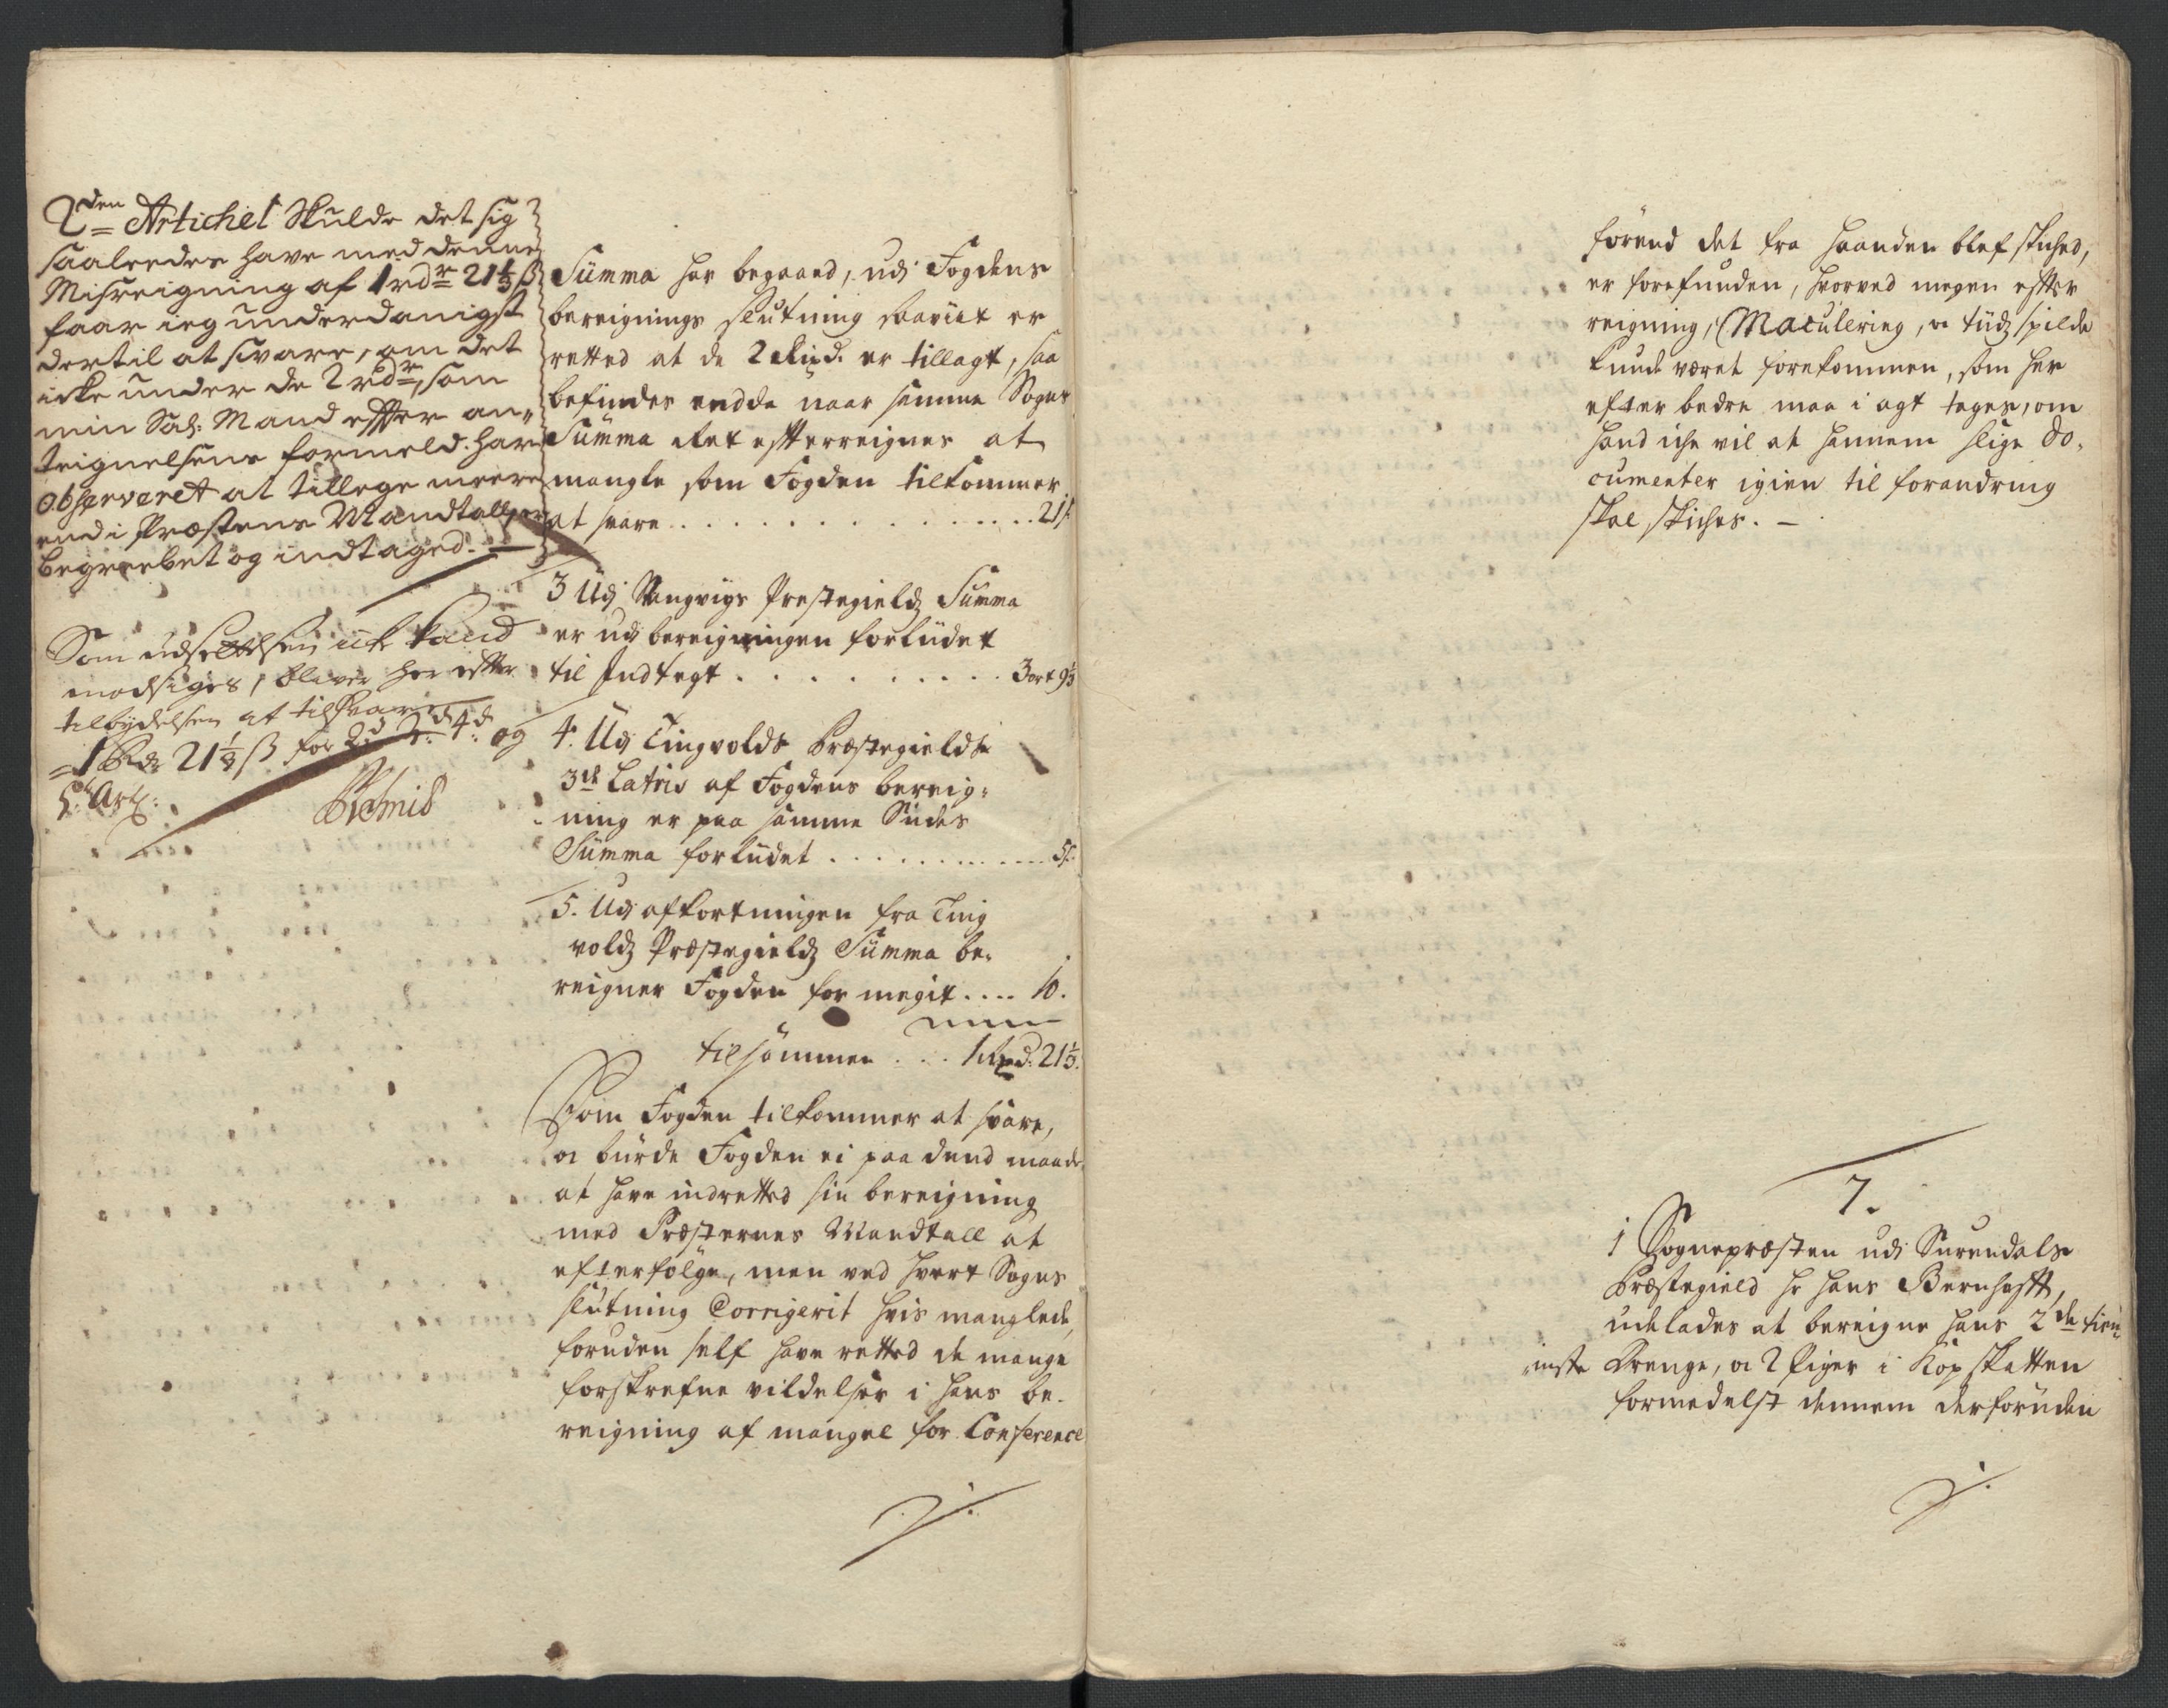 2den Artichel Skulde det sig
saaleedes have med denne
Misreigning af 1 rdr 21⅓ β
faar ieg underdanigst
dertil at svare, om det
icke under de 2 rdr, som
min Sal: Mand effter an„
teignelsens formeld. har
observeret at tillege meere
end i Præstens Mandtall, er
begreebet og indtaged. —
Som udsettelsen iche kand
modsiges, bliver her effter
tilbydelsen at tilsvare
= 1 Rdr 21⅓ β for 2d 3d 4d og
5te Art:
Summa har begaaed, udi Fogdens
bereignings slutning saavit er
retted at de 2 Rixd. er tillagt, saa
befindes endda naar samme Sogns
Summa Ret effterreignes at
mangle som Fogden tilkommer
at svare . . . . . . . . . . . . . . . 21 β
3 Udi Stangvigs Prestegields Summa
er udi bereigningen forküdet
til Indtegt . . . . . . . . . . 3 ort 9⅓
4. Udi Tingvolds Præstegields
3de Lateris af Fogdens bereig-
ning er paa samme Siides
Summa forkiidet . . . . . . . . . . . 5 β
5. Udi afkortningen fra Ting
volds Præstegields Summa be-
reigner Fogden for megit . . . . 10.
tilsammen . . . 1 Rixd. 21⅓.
Som Fogden tilkommer at svare,
og burde Fogden ei paa dend maade
at have indretted sin bereigning
med Præsternes Mandtall at
efterfölge, men ved hvert Sogns
slutning Corrigerit hvis manglede,
foruden self have retted de mange
forskrefne vildelser i hans be-
reigning af mangel for Conference
förend det fra haanden blef skiched,
er forefunden, hvorved megen effter
reigning, Maculering, og tiids spilde
kunde været forekommen, som her
efter bedre maa i agt tages, om
hand iche vil at hannem slige do-
cumenter igien til forandring
skal skiches. —
7.
1 Sognepræsten udi Surendals
Præstegield hr Hans Bernhofft,
udelades at bereigne hans 2de tien-
niste Drenge, og 2 Piger i Kopskatten
formedelst dennem derforuden